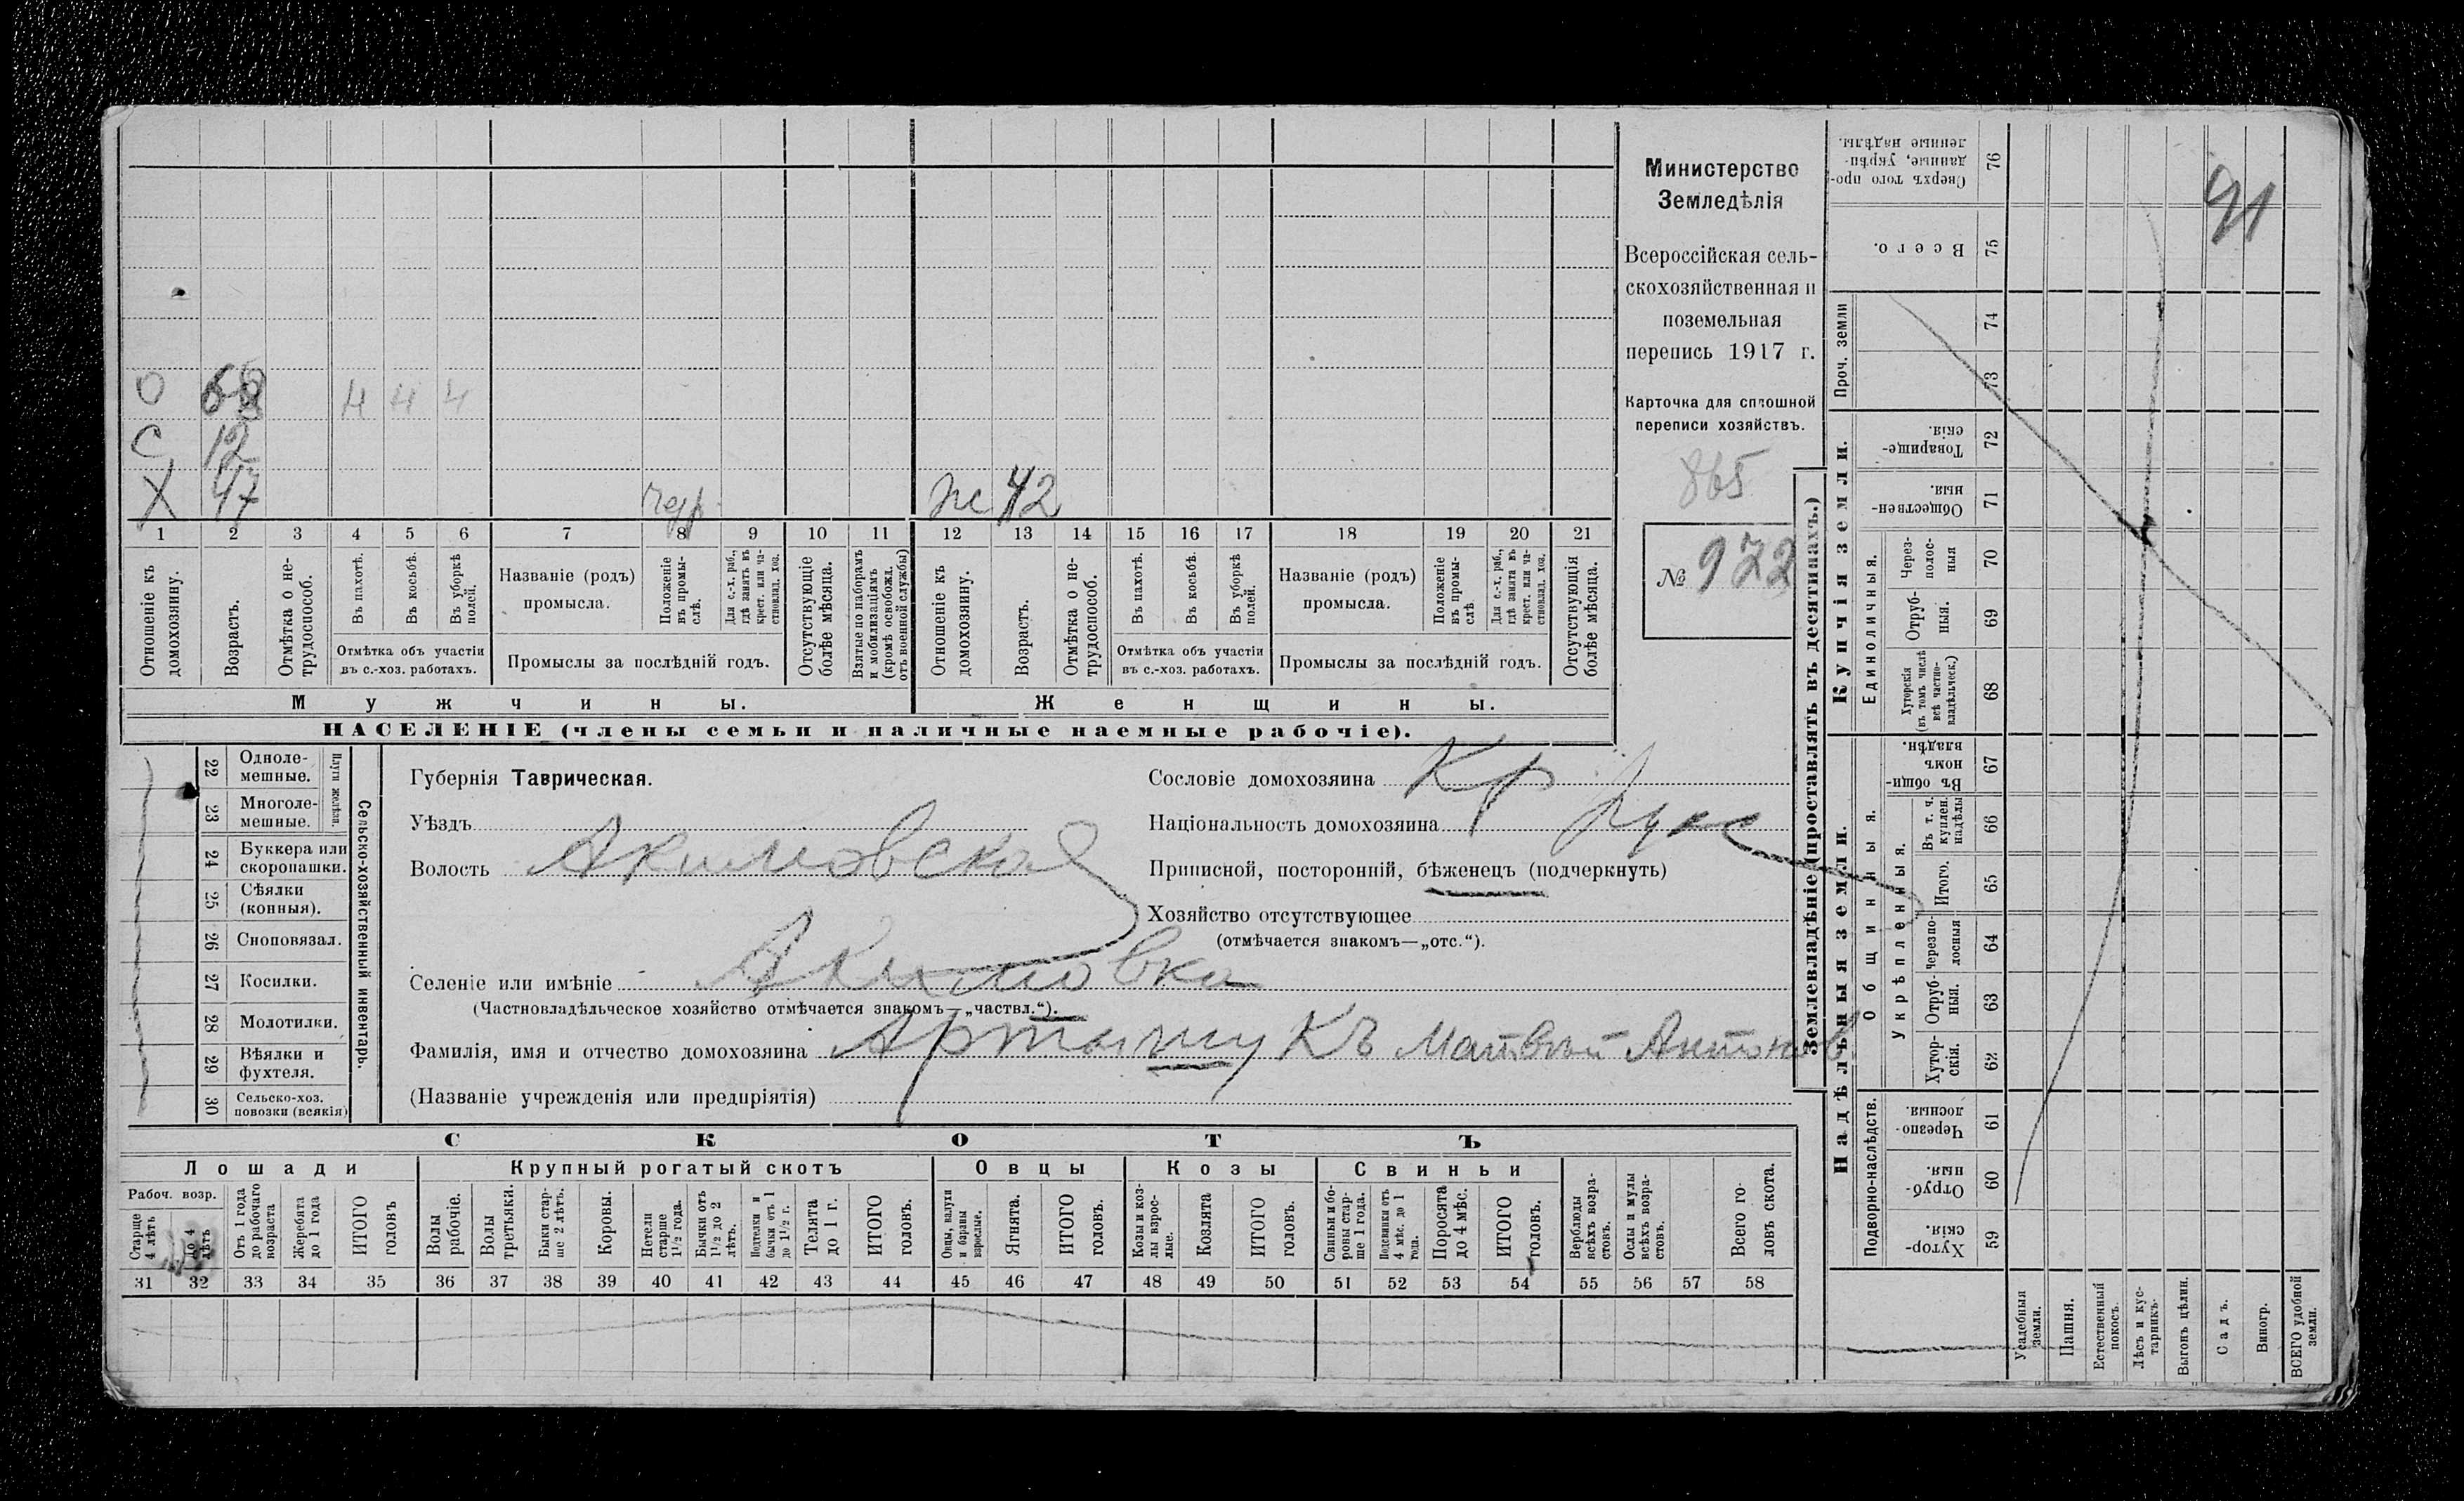 О 68 Ч Ч Ч
С 12
Х 47 ж 42
1 2 3 4 5 6 7 8 9 10 11 12 13 14 15 16 17 18 19 20 21
Отношеніе къ домохозяину.
Возрастъ.
Отмѣтка о не-трудоспособ.
Въ пахотѣ.
Въ косьбѣ.
Въ уборкѣ полей.
Отмѣтка объ участіи
въ с.-хоз. работахъ.
Названіе (родъ)
промысла.
Положеніе въ промы-слѣ.
Для с.-х. раб., гдѣ занятъ въ крест. или ча-стновлад. хоз.
Промыслы за послѣдній годъ.
Отсутствующіе болѣе мѣсяца.
Взятые по наборамъ и мобилизаціямъ (кромѣ освобожд. отъ военной службы)
Отношеніе къ домохозяину.
Возрастъ.
Отмѣтка о не-трудоспособ.
Въ пахотѣ.
Въ косьбѣ.
Въ уборкѣ полей.
Отмѣтка объ участіи
въ с.-хоз. работахъ.
Названіе (родъ)
промысла.
Положеніе въ промы-слѣ
Для с.-х. раб., гдѣ занята въ крест. или ча-стновлад. хоз.
Промыслы за послѣдній годъ.
Отсутствующія болѣе мѣсяца.
Мужчины. Женщины.
НАСЕЛЕНІЕ (члены семьи и наличные наемные рабочіе).
Министерство
Земледѣлія
Всероссійская сель-
скохозяйственная и
поземельная
перепись 1917 г.
Карточка для сплошной
переписи хозяйствъ.
865
№ 972
22 Одноле-мешные.
23 Многоле-мешные.
Плуги желѣзн.
24 Буккера или скоропашки.
25 Сѣялки (конныя).
26 Сноповязал.
27 Косилки.
28 Молотилки.
29 Вѣялки и фухтеля.
30 Сельско-хоз. повозки (всякія)
Сельско-хозяйственный инвентарь.
Губернія Таврическая.
Уѣздъ
Волость Акимовская
Селеніе или имѣніе Акимовка
(Частновладѣльческое хозяйство отмѣчается знакомъ—„частвл.“).
Фамилія, имя и отчество домохозяина Артынукъ Матвѣй Антонов
(Названіе учрежденія или предпріятія)
Сословіе домохозяина Кр
Національность домохозяина Рус
Приписной, посторонній, бѣженецъ (подчеркнуть)
Хозяйство отсутствующее
(отмѣчается знакомъ—„отс.“).
СКОТЪ
Лошади Крупный рогатый скотъ Овцы Козы Свиньи
Рабоч. возр.
Старше 4 лѣтъ
до 4 лѣтъ
Отъ 1 года до рабочаго возраста
Жеребята до 1 года
ИТОГО головъ
Волы рабочіе.
Волы третьяки.
Быки стар-ше 2 лѣтъ.
Коровы.
Нетели старше 1½ года.
Бычки отъ 1½ до 2 лѣтъ.
Подтелки и бычки отъ 1 до 1½ г.
Телята до 1 г.
ИТОГО головъ.
Овцы, валухи и бараны взрослые.
Ягнята.
ИТОГО головъ.
Козы и коз-лы взрос-лые.
Козлята
ИТОГО головъ.
Свиньи и бо-ровы стар-ше 1 года.
Подсвинки отъ 4 мѣс. до 1 года.
Поросята до 4 мѣс.
ИТОГО головъ.
Верблюды всѣхъ возра-стовъ.
Ослы и мулы всѣхъ возра-стовъ.
Всего го-ловъ скота.
31 32 33 34 35 36 37 38 39 40 41 42 43 44 45 46 47 48 49 50 51 52 53 54 55 56 57 58
Землевладѣніе (проставлять въ десятинахъ.)
91
Сверхъ того про-данные, укрѣп-ленные надѣлы. 76
Всего. 75
Проч. земли 74
73
Купчія земли.
Товарище-скія. 72
Обществен-ныя. 71
Единоличныя.
Через-полос-ныя 70
Отруб-ныя. 69
Хуторскія (въ томъ числѣ всѣ частно-владѣльческ.) 68
Надѣльныя земли.
Общинныя.
Въ общин-номъ владѣн. 67
Укрѣпленныя.
Въ т. ч. куплен. надѣлы 66
Итого. 65
Черезпо-лосныя 64
Отруб-ныя. 63
Хутор-скія. 62
Подворно-наслѣдств.
Черезпо-лосныя. 61
Отруб-ныя. 60
Хутор-скія. 59
Усадебныя земли.
Пашня.
Естественный покосъ.
Лѣсъ и кус-тарникъ.
Выгонъ цѣлин.
Садъ.
Виногр.
ВСЕГО удобной земли.